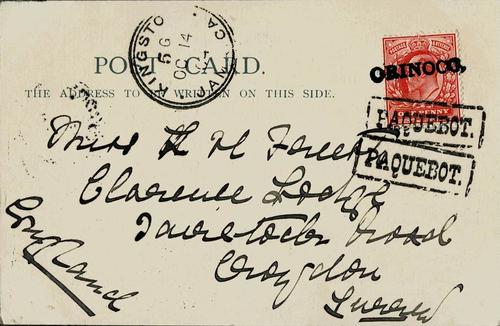 KINGSTON
5 G
OC 14
JAMAICA
POST CARD.
THE ADDRESS TO BE WRITTEN ON THIS SIDE.
ORINOCO,
ONE PENNY
PAQUEBOT.
PAQUEBOT.
Miss H H
Clarence Lodge
Tavistock Road
Croydon
Surrey
England